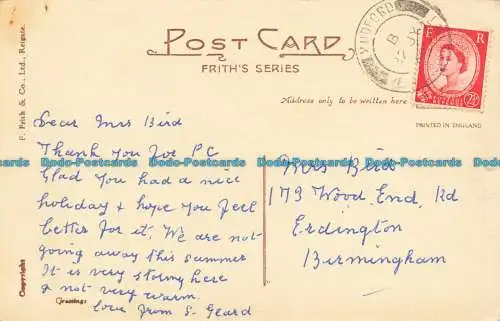 POST CARD
FRITH'S SERIES
Address only to be written here
PRINTED IN ENGLAND
F. Frith & Co., Ltd., Reigate.
Copyright
E R
2½
Dear Mrs Bird
Thank you for P.C
Glad you had a nice
holiday & hope you feel
better for it. We are not
going away this summer
It is very stormy here
& not very warm.
Greetings
love from S. Geard
Mrs Bird
179 Wood End Rd
Erdington
Birmingham
Postcards-Docks Postcards-Docks Postcards-Docks